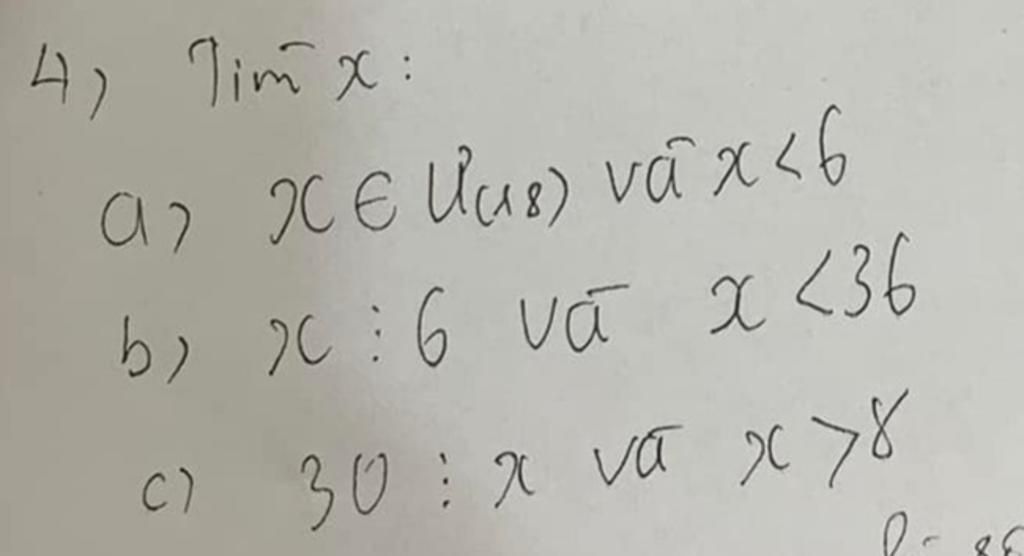 4) Tìm x:
a) x ∈ Ư(18) và x < 6
b) x ⋮ 6 và x < 36
c) 30 ⋮ x và x > 8